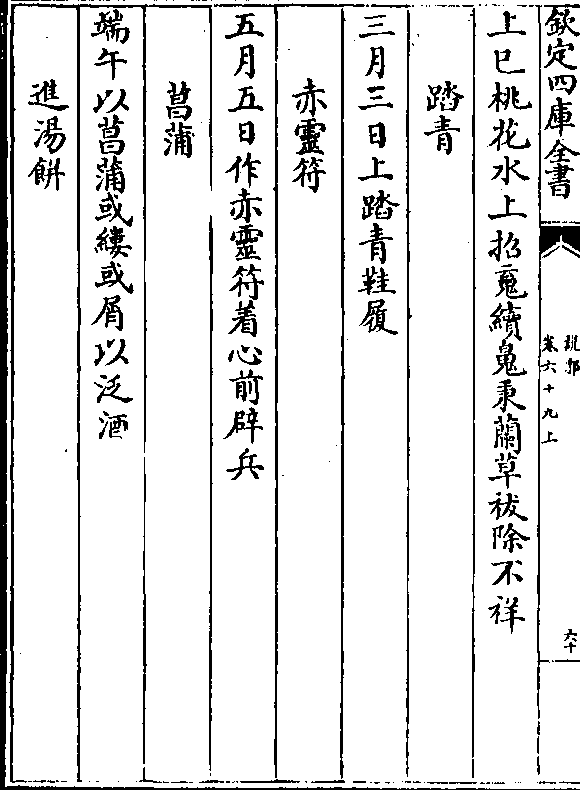 欽定四庫全書
說郛
卷六十九上
六十
上巳桃花水上招䰟續䰟秉蘭草祓除不祥
踏青
三月三日上踏青鞋履
赤靈符
五月五日作赤靈符着心前辟兵
菖蒲
端午以菖蒲或縷或屑以泛酒
進湯餅